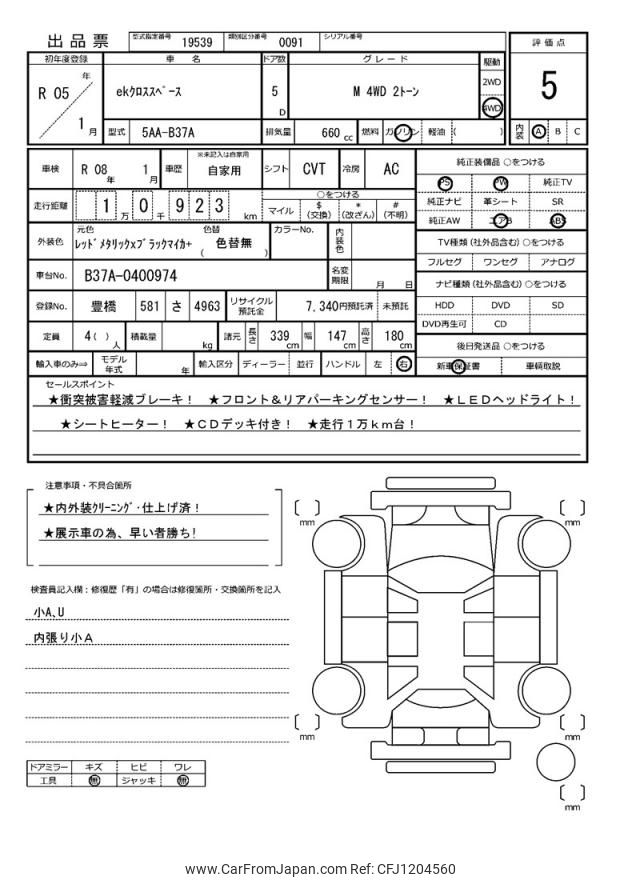 出品票 型式指定番号 19539 類別区分番号 0091 シリアル番号
評価点
5
内装 A B C
初年度登録 車名 ドア数 グレード 駆動
R 05 年 1 月 ekクロススペース 5 D M 4WD 2トーン 2WD 4WD
型式 5AA-B37A 排気量 660 cc 燃料 ガソリン 軽油 ( )
車検 R 08 年 1 月 車歴 ※未記入は自家用 自家用 シフト CVT 冷房 AC
走行距離 1 万 0 千 9 2 3 km ○をつける
マイル $(交換) *(改ざん) #(不明)
外装色 元色 レッドメタリック×ブラックマイカ+ 色替 ( 色替無 ) カラーNo. 内装色
車台No. B37A-0400974 名変期限 月 日
登録No. 豊橋 581 さ 4963 リサイクル預託金 7,340円預託済 未預託
定員 4 ( ) 人 積載量 kg 諸元 長さ 339 cm 幅 147 cm 高さ 180 cm
輸入車のみ⇒ モデル年式 年 輸入区分 ディーラー 並行 ハンドル 左 右
純正装備品 ○をつける
PS PW 純正TV
純正ナビ 革シート SR
純正AW エアB ABS
TV種類(社外品含む)○をつける
フルセグ ワンセグ アナログ
ナビ種類(社外品含む)○をつける
HDD DVD SD
DVD再生可 CD
後日発送品 ○をつける
新車保証書 車輌取説
セールスポイント
★衝突被害軽減ブレーキ! ★フロント&リアパーキングセンサー! ★LEDヘッドライト!
★シートヒーター! ★CDデッキ付き! ★走行1万km台!
注意事項・不具合箇所
★内外装クリーニング・仕上げ済!
★展示車の為、早い者勝ち!
検査員記入欄:修復歴「有」の場合は修復箇所・交換箇所を記入
小A,U
内張り小A
ドアミラー キズ ヒビ ワレ
工具 無 ジャッキ 無
mm
mm
mm
mm
mm
www.CarFromJapan.com Ref: CFJ1204560